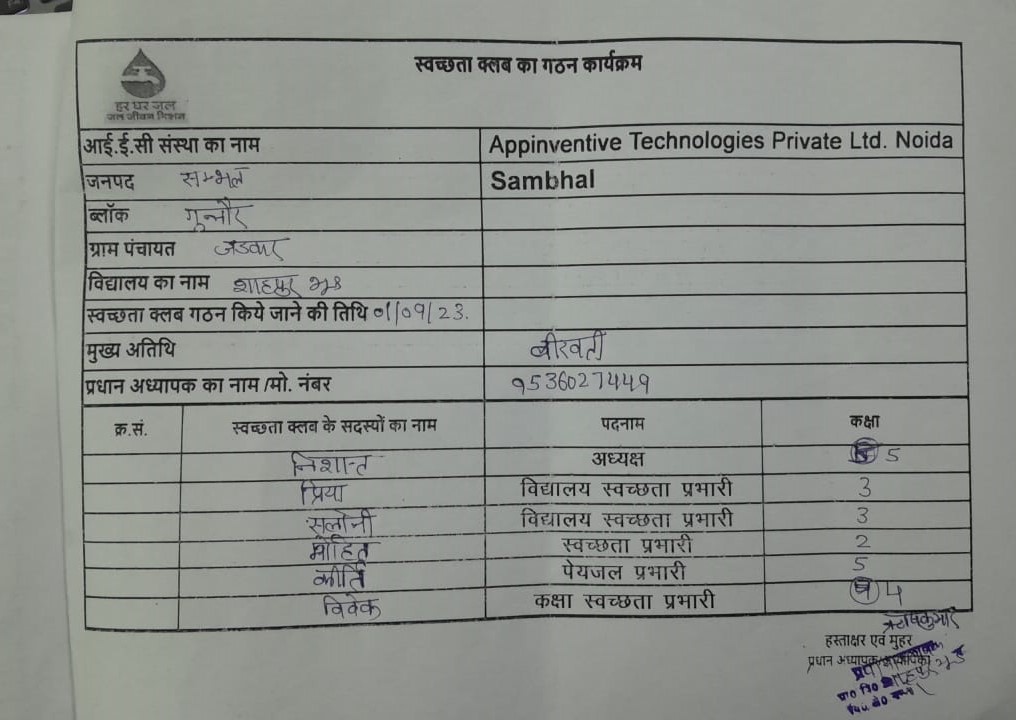 स्वच्छता क्लब का गठन कार्यक्रम
हर घर जल
जल जीवन मिशन
आई.ई.सी संस्था का नाम Appinventive Technologies Private Ltd. Noida
जनपद सम्भल Sambhal
ब्लॉक गुन्नौर
ग्राम पंचायत जडवार
विद्यालय का नाम शाहपुर
स्वच्छता क्लब गठन किये जाने की तिथि 01/09/23.
मुख्य अतिथि वीरवती
प्रधान अध्यापक का नाम /मो. नंबर 9536027449
क्र.सं. स्वच्छता क्लब के सदस्यों का नाम पदनाम कक्षा
निशान्त अध्यक्ष 5
प्रिया विद्यालय स्वच्छता प्रभारी 3
सलोनी विद्यालय स्वच्छता प्रभारी 3
मोहित स्वच्छता प्रभारी 2
कीर्ति पेयजल प्रभारी 5
विवेक कक्षा स्वच्छता प्रभारी 4
हस्ताक्षर एवं मुहर
प्रधान अध्यापक